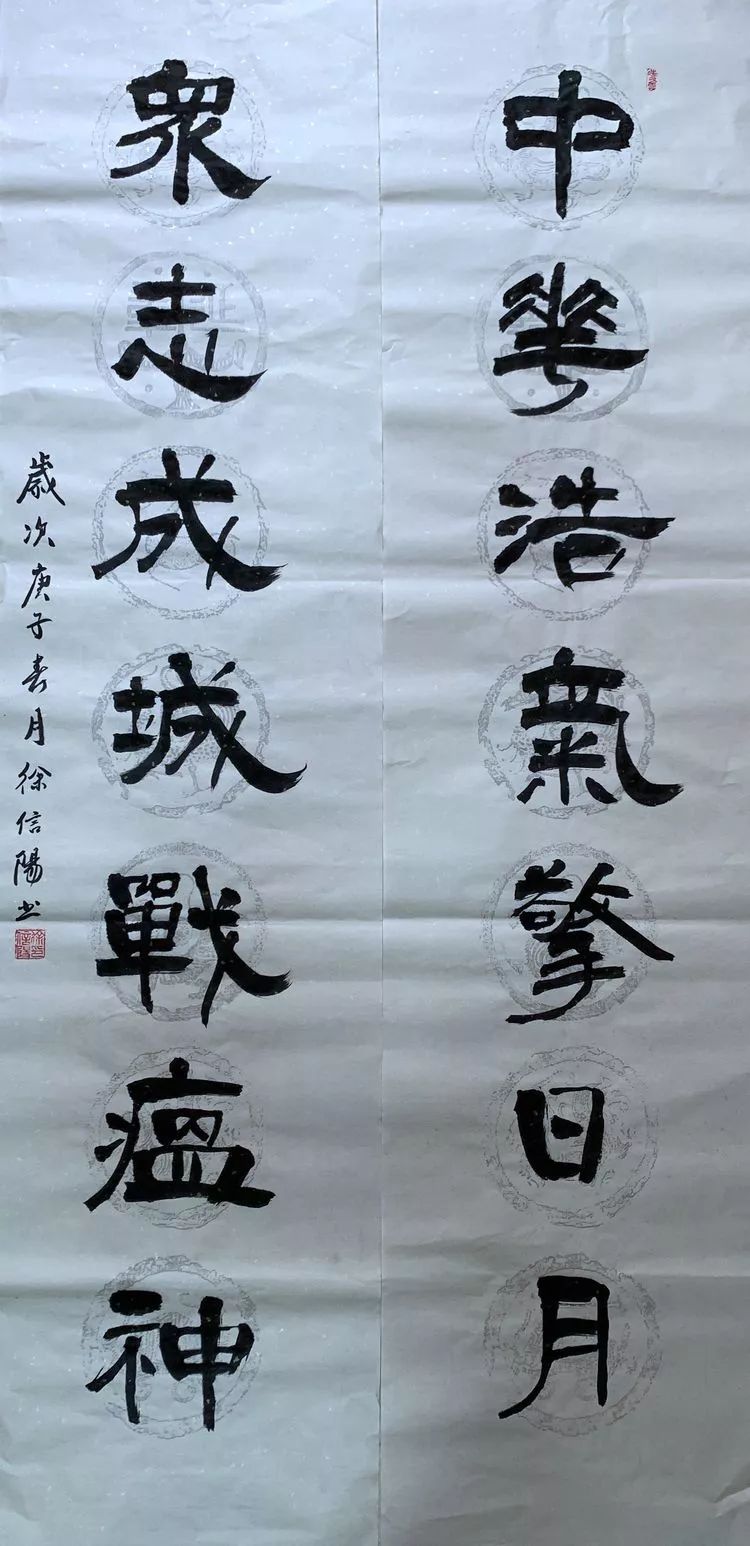 中華浩氣擎日月
眾志成城戰瘟神
歲次庚子春月徐信陽书